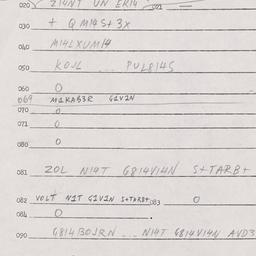 020 Z14NT UN ER14 021 —
030 + QM14S+3X
040 M14LXUM14
050 KOJL ... PUL814S
060 0
069 MARAB3R G1V1N
070 0
071 0
080 0
081 ZOL N14T G814V14N S+TARB+
082 VOLT N1T G1V1N S+TARB+ 083 0
084 0 .
090 G814BOJRN ... N14T G814V14N AVD3